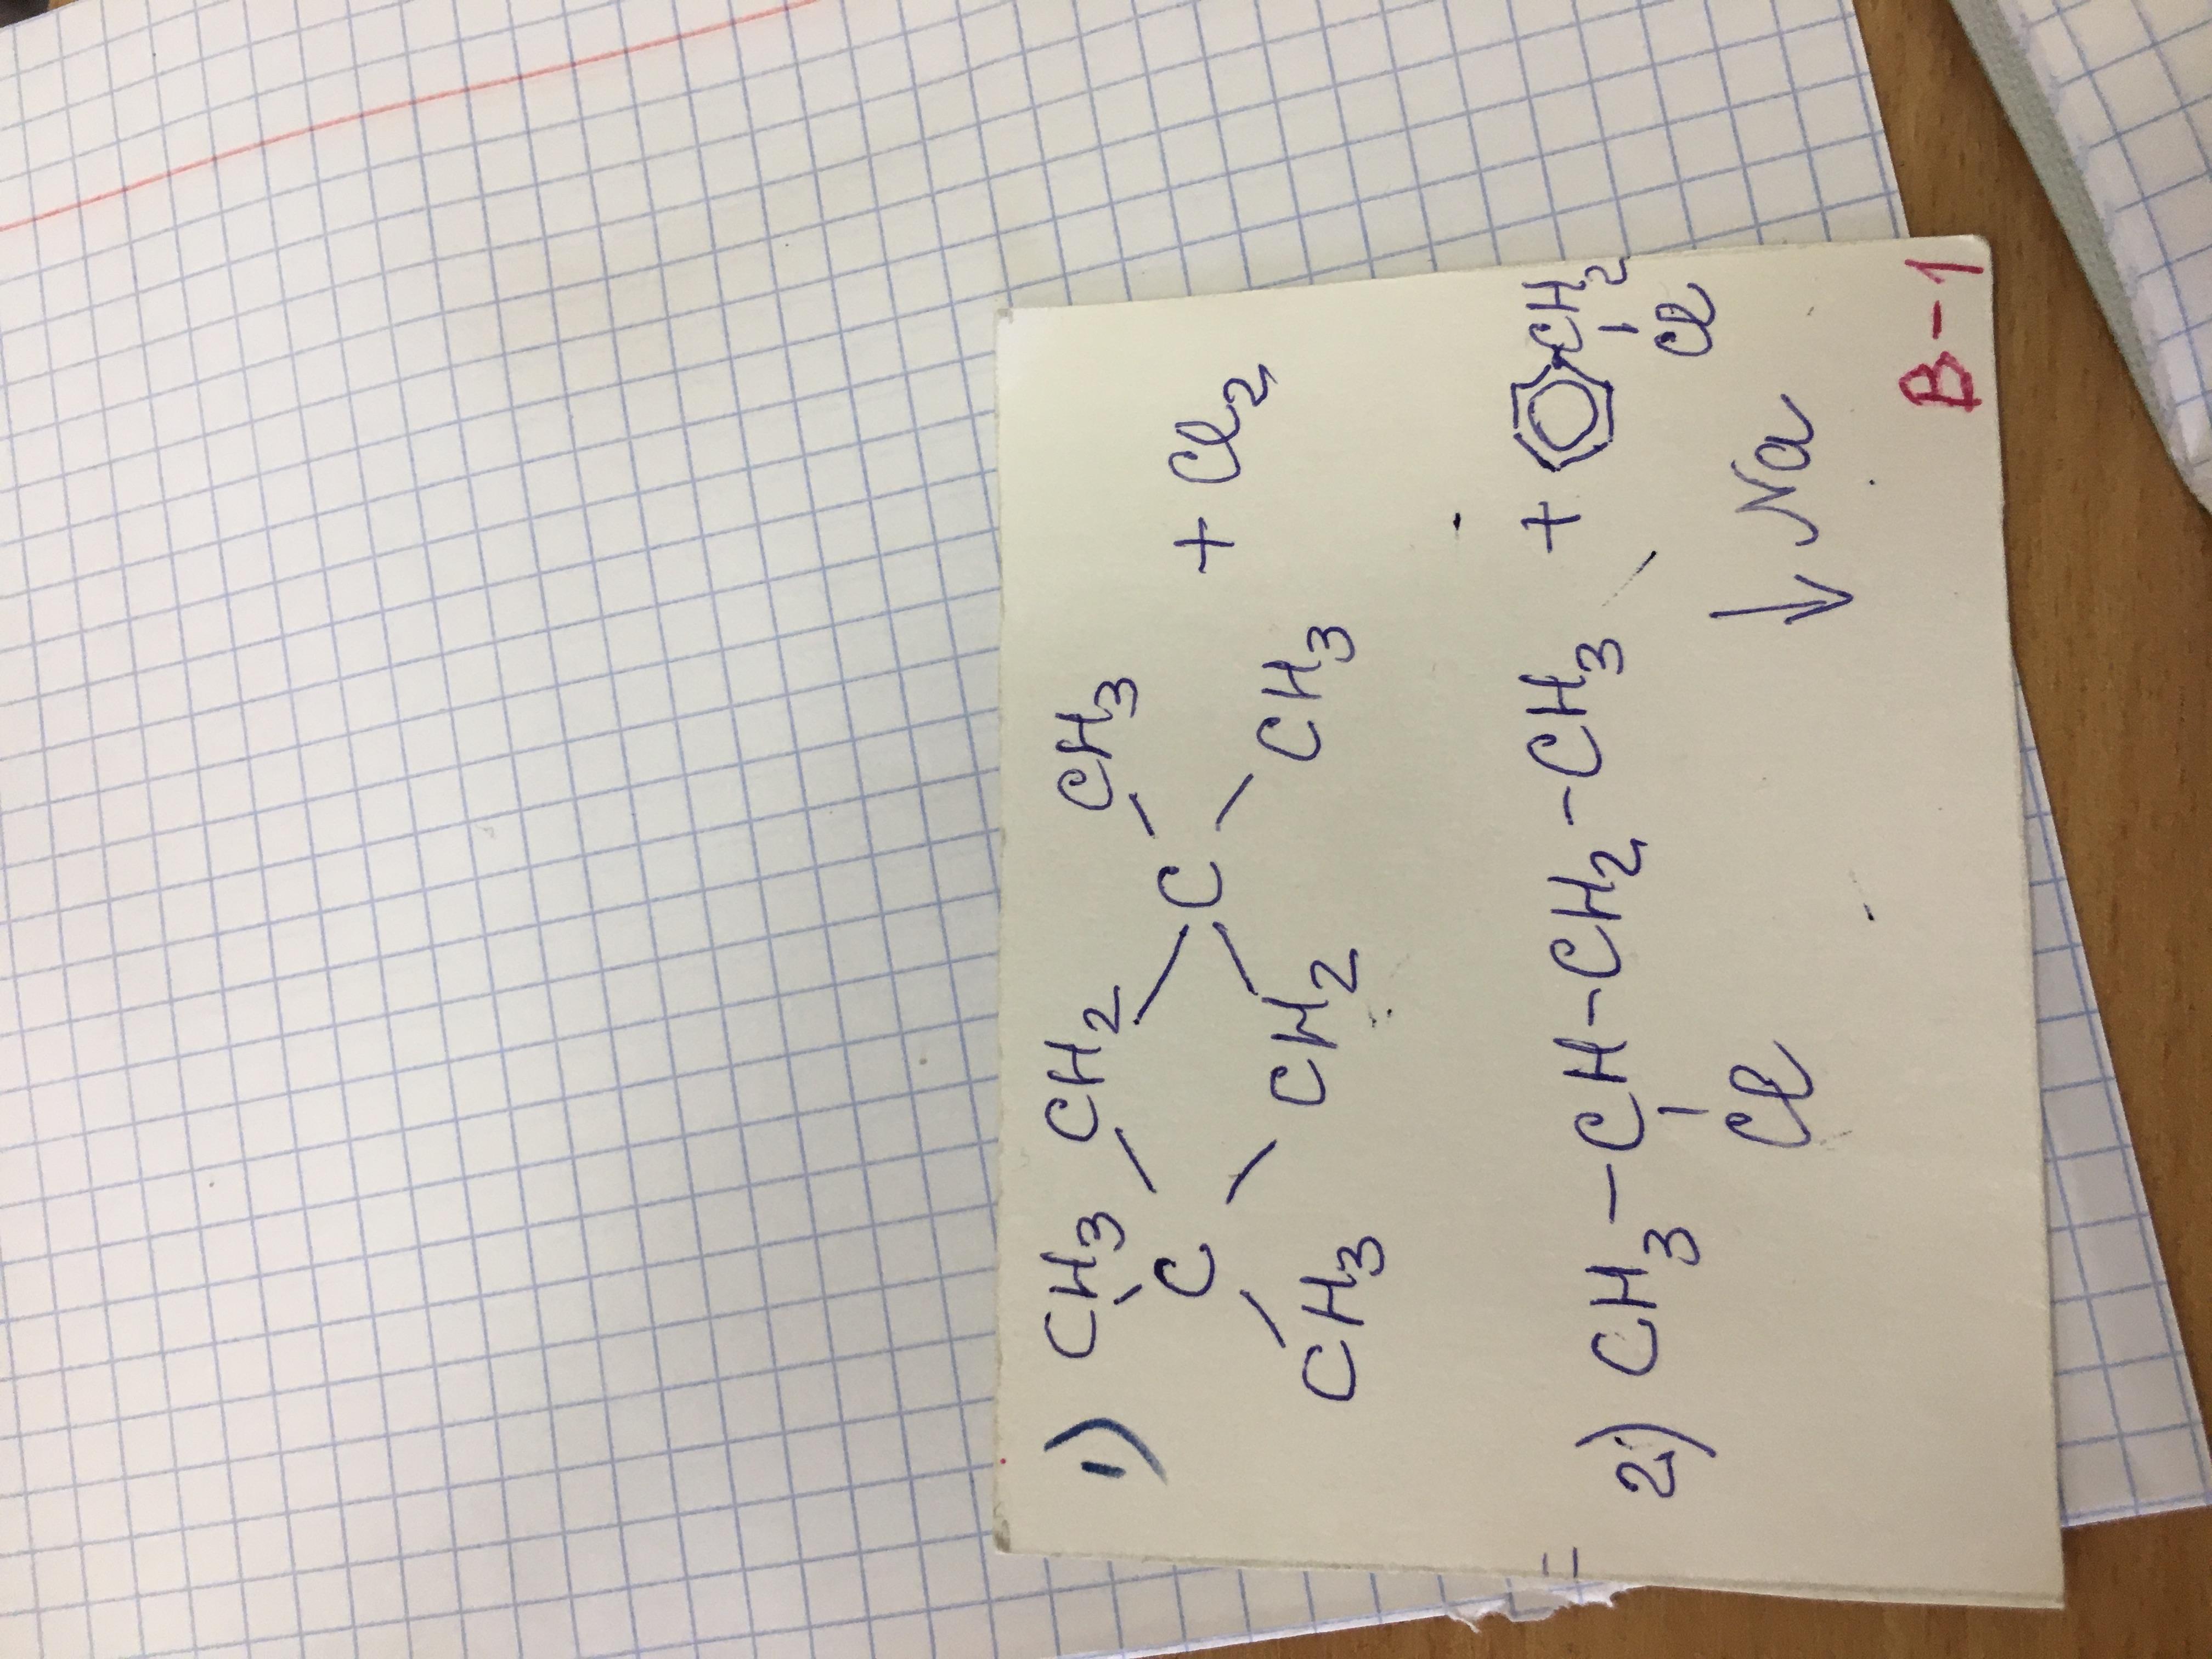 1) CH3 CH2 CH3
C C + Cl2
CH3 CH2 CH3
= 2) CH3 – CH – CH2 – CH3 + CH2
Cl Cl
↓ Na
B-1